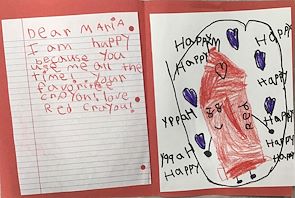 Dear Maria
I am happy
because you
use me all the
time!.. Your
favorite
crayon! love
Red Crayou!
Happy
Happy
Happy
Happy
Happy
Happy
Happy
Happy
Happy
Happy
Happy
Red